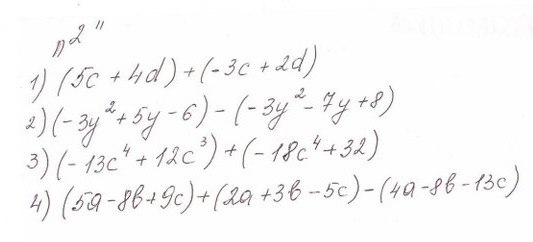 „2"
1) (5c + 4d) + (-3c + 2d)
2) (-3y² + 5y - 6) - (-3y² - 7y + 8)
3) (-13c⁴ + 12c³) + (-18c⁴ + 32)
4) (5a - 8b + 9c) + (2a + 3b - 5c) - (4a - 8b - 13c)